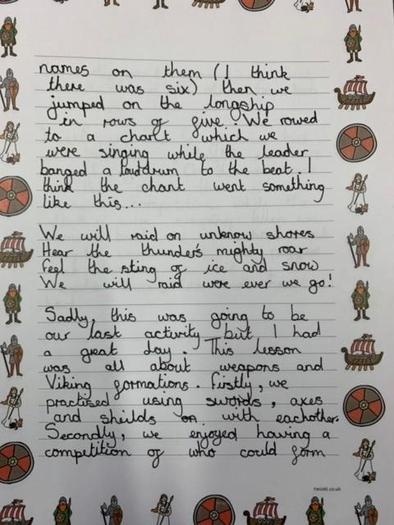 names on them (I think
there was six) then we
jumped on the longship
in rows of five. We rowed
to a chant which we
were singing while the leader
banged a loud drum to the beat. I
think the chant went something
like this...
We will raid on unknow shores
Hear the thunder's mighty roar
Feel the sting of ice and snow
We will raid were ever we go!
Sadly, this was going to be
our last activity but I had
a great day. This lesson
was all about weapons and
Viking formations. Firstly, we
practised using swords, axes
and sheilds on with eachother.
Secondly, we enjoyed having a
competition of who could form
twinkl.co.uk